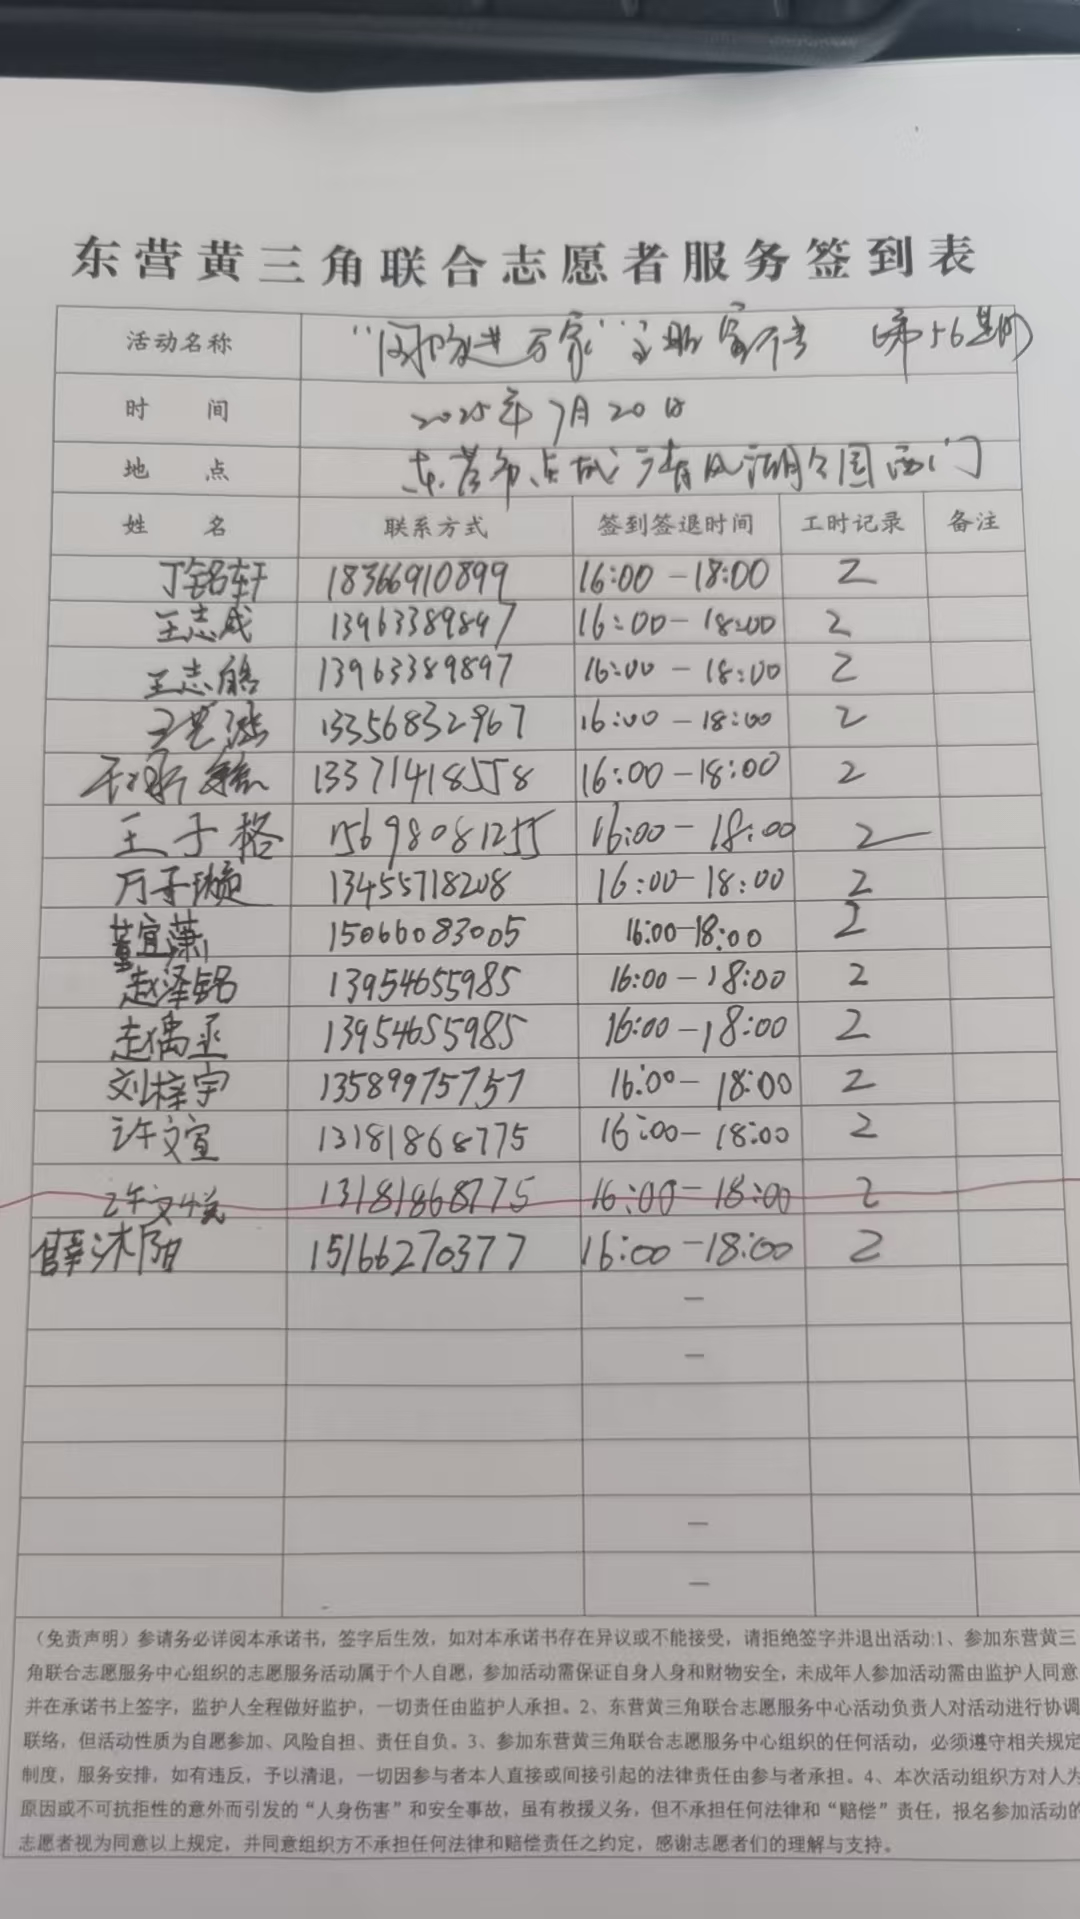 东营黄三角联合志愿者服务签到表
活动名称 “消防进万家”主题宣传 (第56期)
时 间 2025年7月20日
地 点 东营市东城清风湖公园西门
姓 名 联系方式 签到签退时间 工时记录 备注
丁铭轩 18366910899 16:00-18:00 2
王志成 13963389897 16:00-18:00 2
王志皓 13963389897 16:00-18:00 2
13356832967 16:00-18:00 2
13371418558 16:00-18:00 2
王子格 15698081255 16:00-18:00 2
万子璇 13455718208 16:00-18:00 2
董宜潇 15066083005 16:00-18:00 2
赵泽铭 13954655985 16:00-18:00 2
赵禹丞 13954655985 16:00-18:00 2
刘梓宇 13589975757 16:00-18:00 2
许文宣 13181868775 16:00-18:00 2
许文悦 13181868775 16:00-18:00 2
薛沐阳 15166270377 16:00-18:00 2
—
—
—
—
（免责声明）参请务必详阅本承诺书，签字后生效，如对本承诺书存在异议或不能接受，请拒绝签字并退出活动:1、参加东营黄三
角联合志愿服务中心组织的志愿服务活动属于个人自愿，参加活动需保证自身人身和财物安全，未成年人参加活动需由监护人同意
并在承诺书上签字，监护人全程做好监护，一切责任由监护人承担。2、东营黄三角联合志愿服务中心活动负责人对活动进行协调
联络，但活动性质为自愿参加、风险自担、责任自负。3、参加东营黄三角联合志愿服务中心组织的任何活动，必须遵守相关规定
制度，服务安排，如有违反，予以清退，一切因参与者本人直接或间接引起的法律责任由参与者承担。4、本次活动组织方对人为
原因或不可抗拒性的意外而引发的“人身伤害”和安全事故，虽有救援义务，但不承担任何法律和“赔偿”责任，报名参加活动的
志愿者视为同意以上规定，并同意组织方不承担任何法律和赔偿责任之约定，感谢志愿者们的理解与支持。